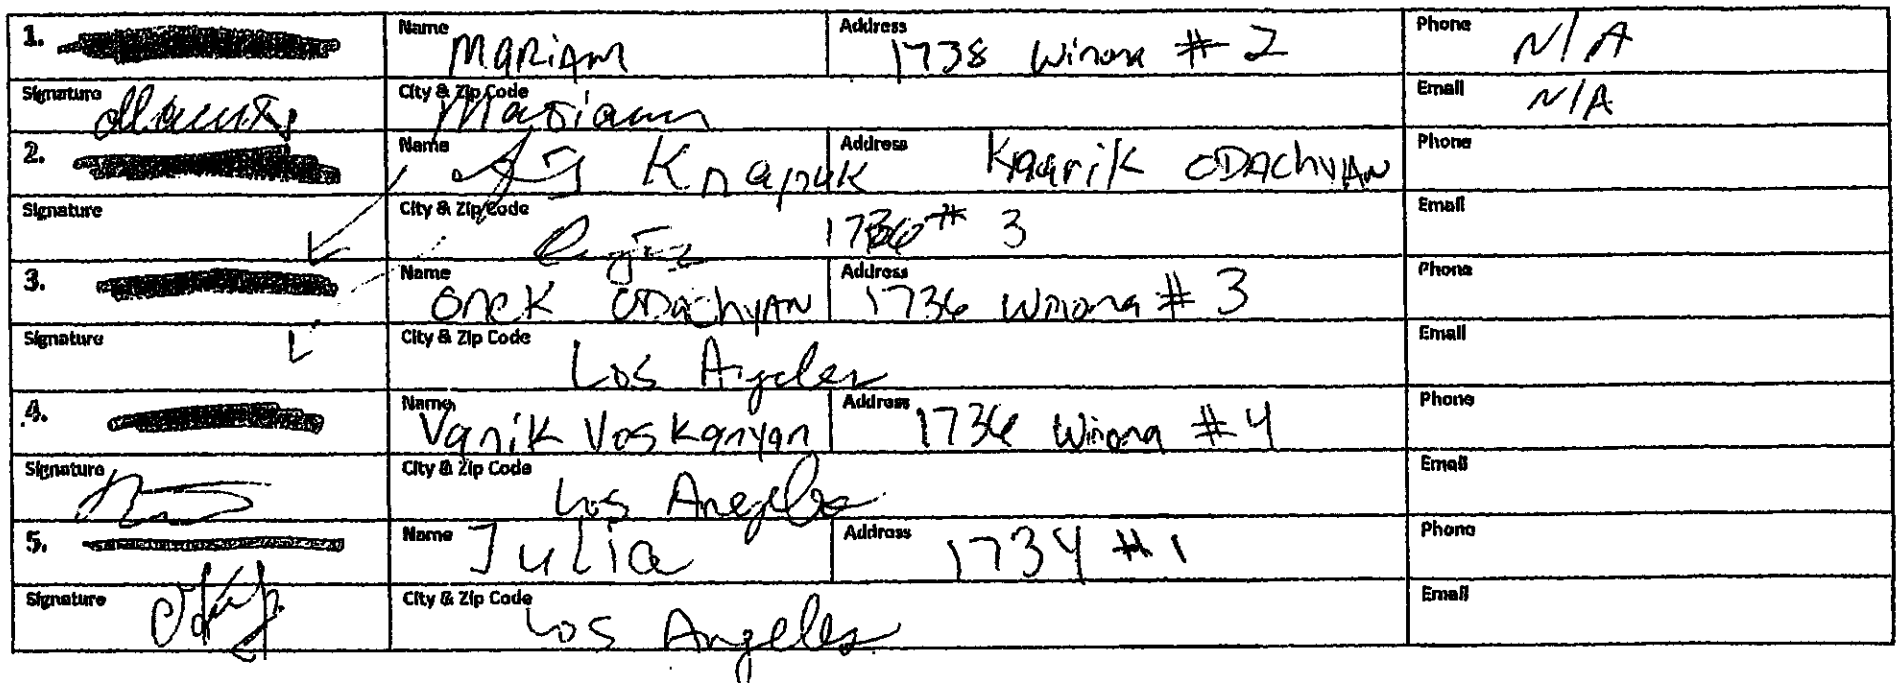 1. Name MARiAM Address 1738 Winona # 2 Phone N/A
Signature City & Zip Code Mariam Email N/A
2. Name Knapik Address Knarik ODAchyAN Phone
Signature City & Zip Code 1736 # 3 Email
3. Name ODAchyAN Address 1736 Winona # 3 Phone
Signature City & Zip Code Los Angeles Email
4. Name Vanik Voskanyan Address 1736 Winona # 4 Phone
Signature City & Zip Code Los Angeles Email
5. Name Julia Address 1734 # 1 Phone
Signature City & Zip Code Los Angeles Email